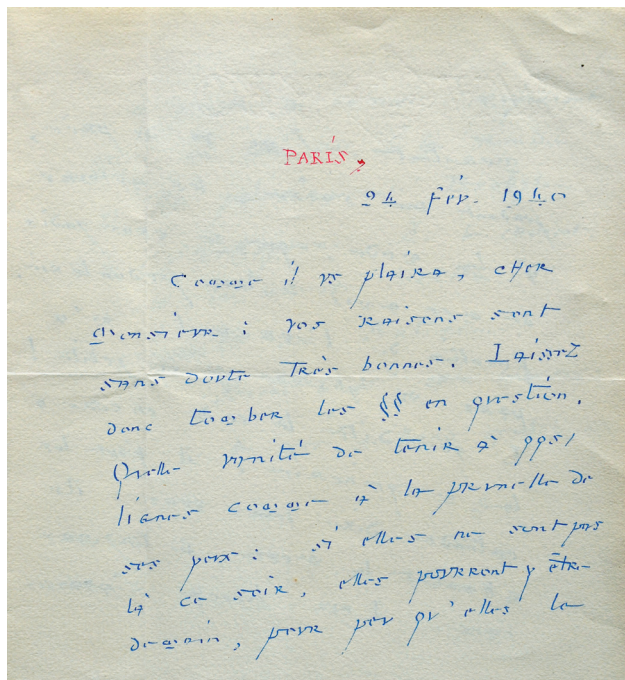 PARIS,
24 fév. 1940
Comme il vs plaira, cher
Monsieur : vos raisons sont
sans doute très bonnes. Laissez
donc tomber les §§ en question.
Quelle vanité de tenir à qqs,
lignes comme à la prunelle de
ses yeux : si elles ne sont pas
là ce soir, elles pourront y être
demain, pour peu qu'elles le